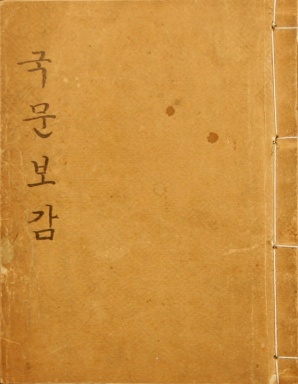 국문보감